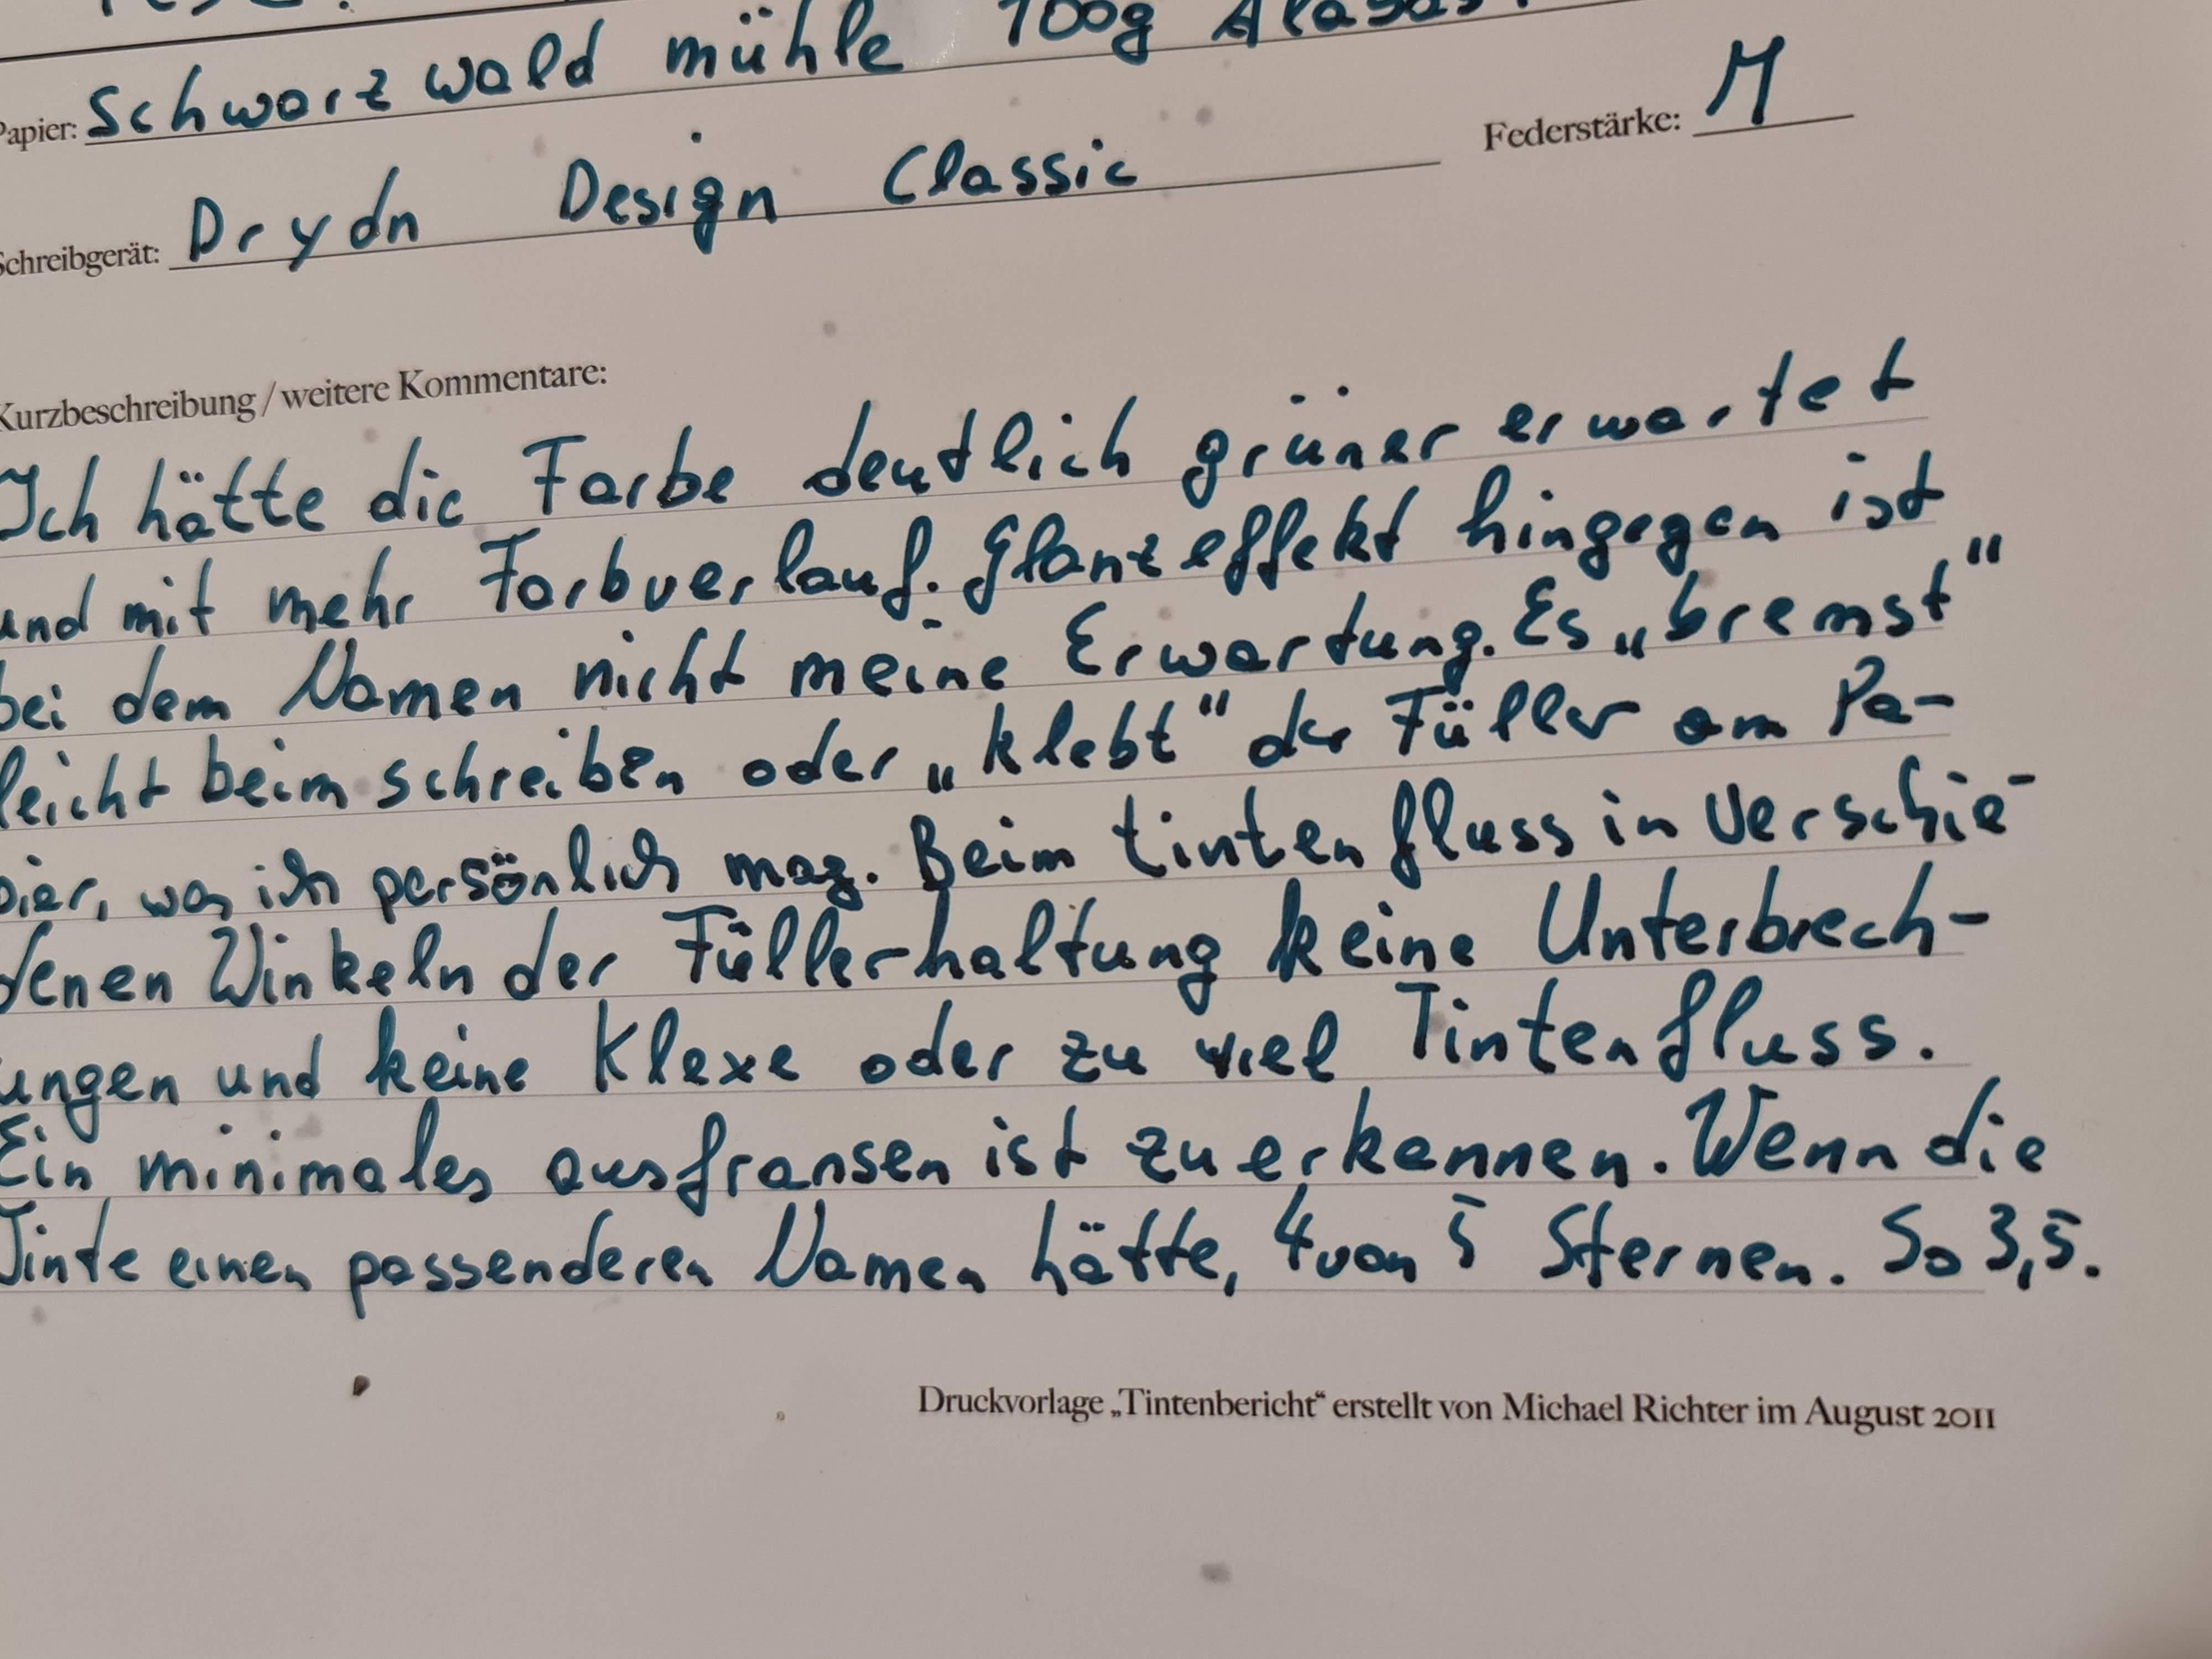 Papier: Schwarzwald mühle 100g
Federstärke: M
Schreibgerät: Drydn Design Classic
Kurzbeschreibung / weitere Kommentare:
Ich hätte die Farbe deutlich grüner erwartet
und mit mehr Farbverlauf. Glanzeffekt hingegen ist
bei dem Namen nicht meine Erwartung. Es „bremst“
leicht beim schreiben oder „klebt“ der Füller am Pa-
pier, was ich persönlich mag. Beim tintenfluss in verschie-
denen Winkeln der Füllerhaltung keine Unterbrech-
ungen und keine Klexe oder zu viel Tintenfluss.
Ein minimales ausfransen ist zu erkennen. Wenn die
Tinte einen passenderen Namen hätte, 4 von 5 Sternen. So 3,5.
Druckvorlage „Tintenbericht“ erstellt von Michael Richter im August 2011